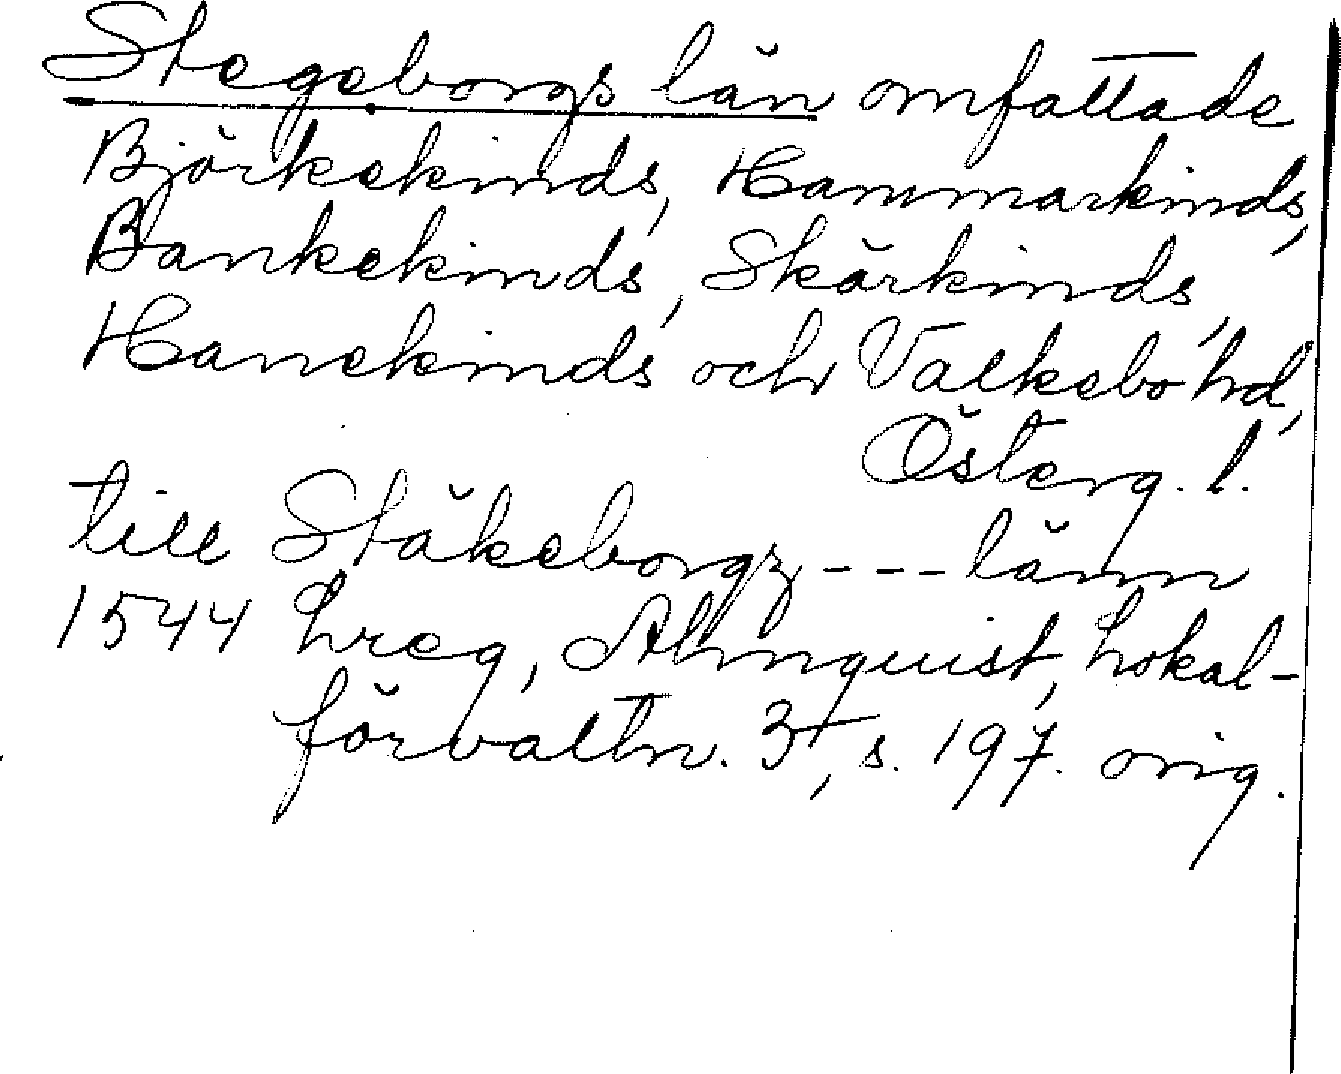 Stegeborgs län omfattade
Björkekinds, Hammarkinds,
Bankekinds, Skärkinds,
Hanekinds och Valkebo hd,
Österg. l.
till Stäkeborgz --- länn
1544 Lreg, Almquist, Lokal-
förvaltn. 3, s. 197. orig.